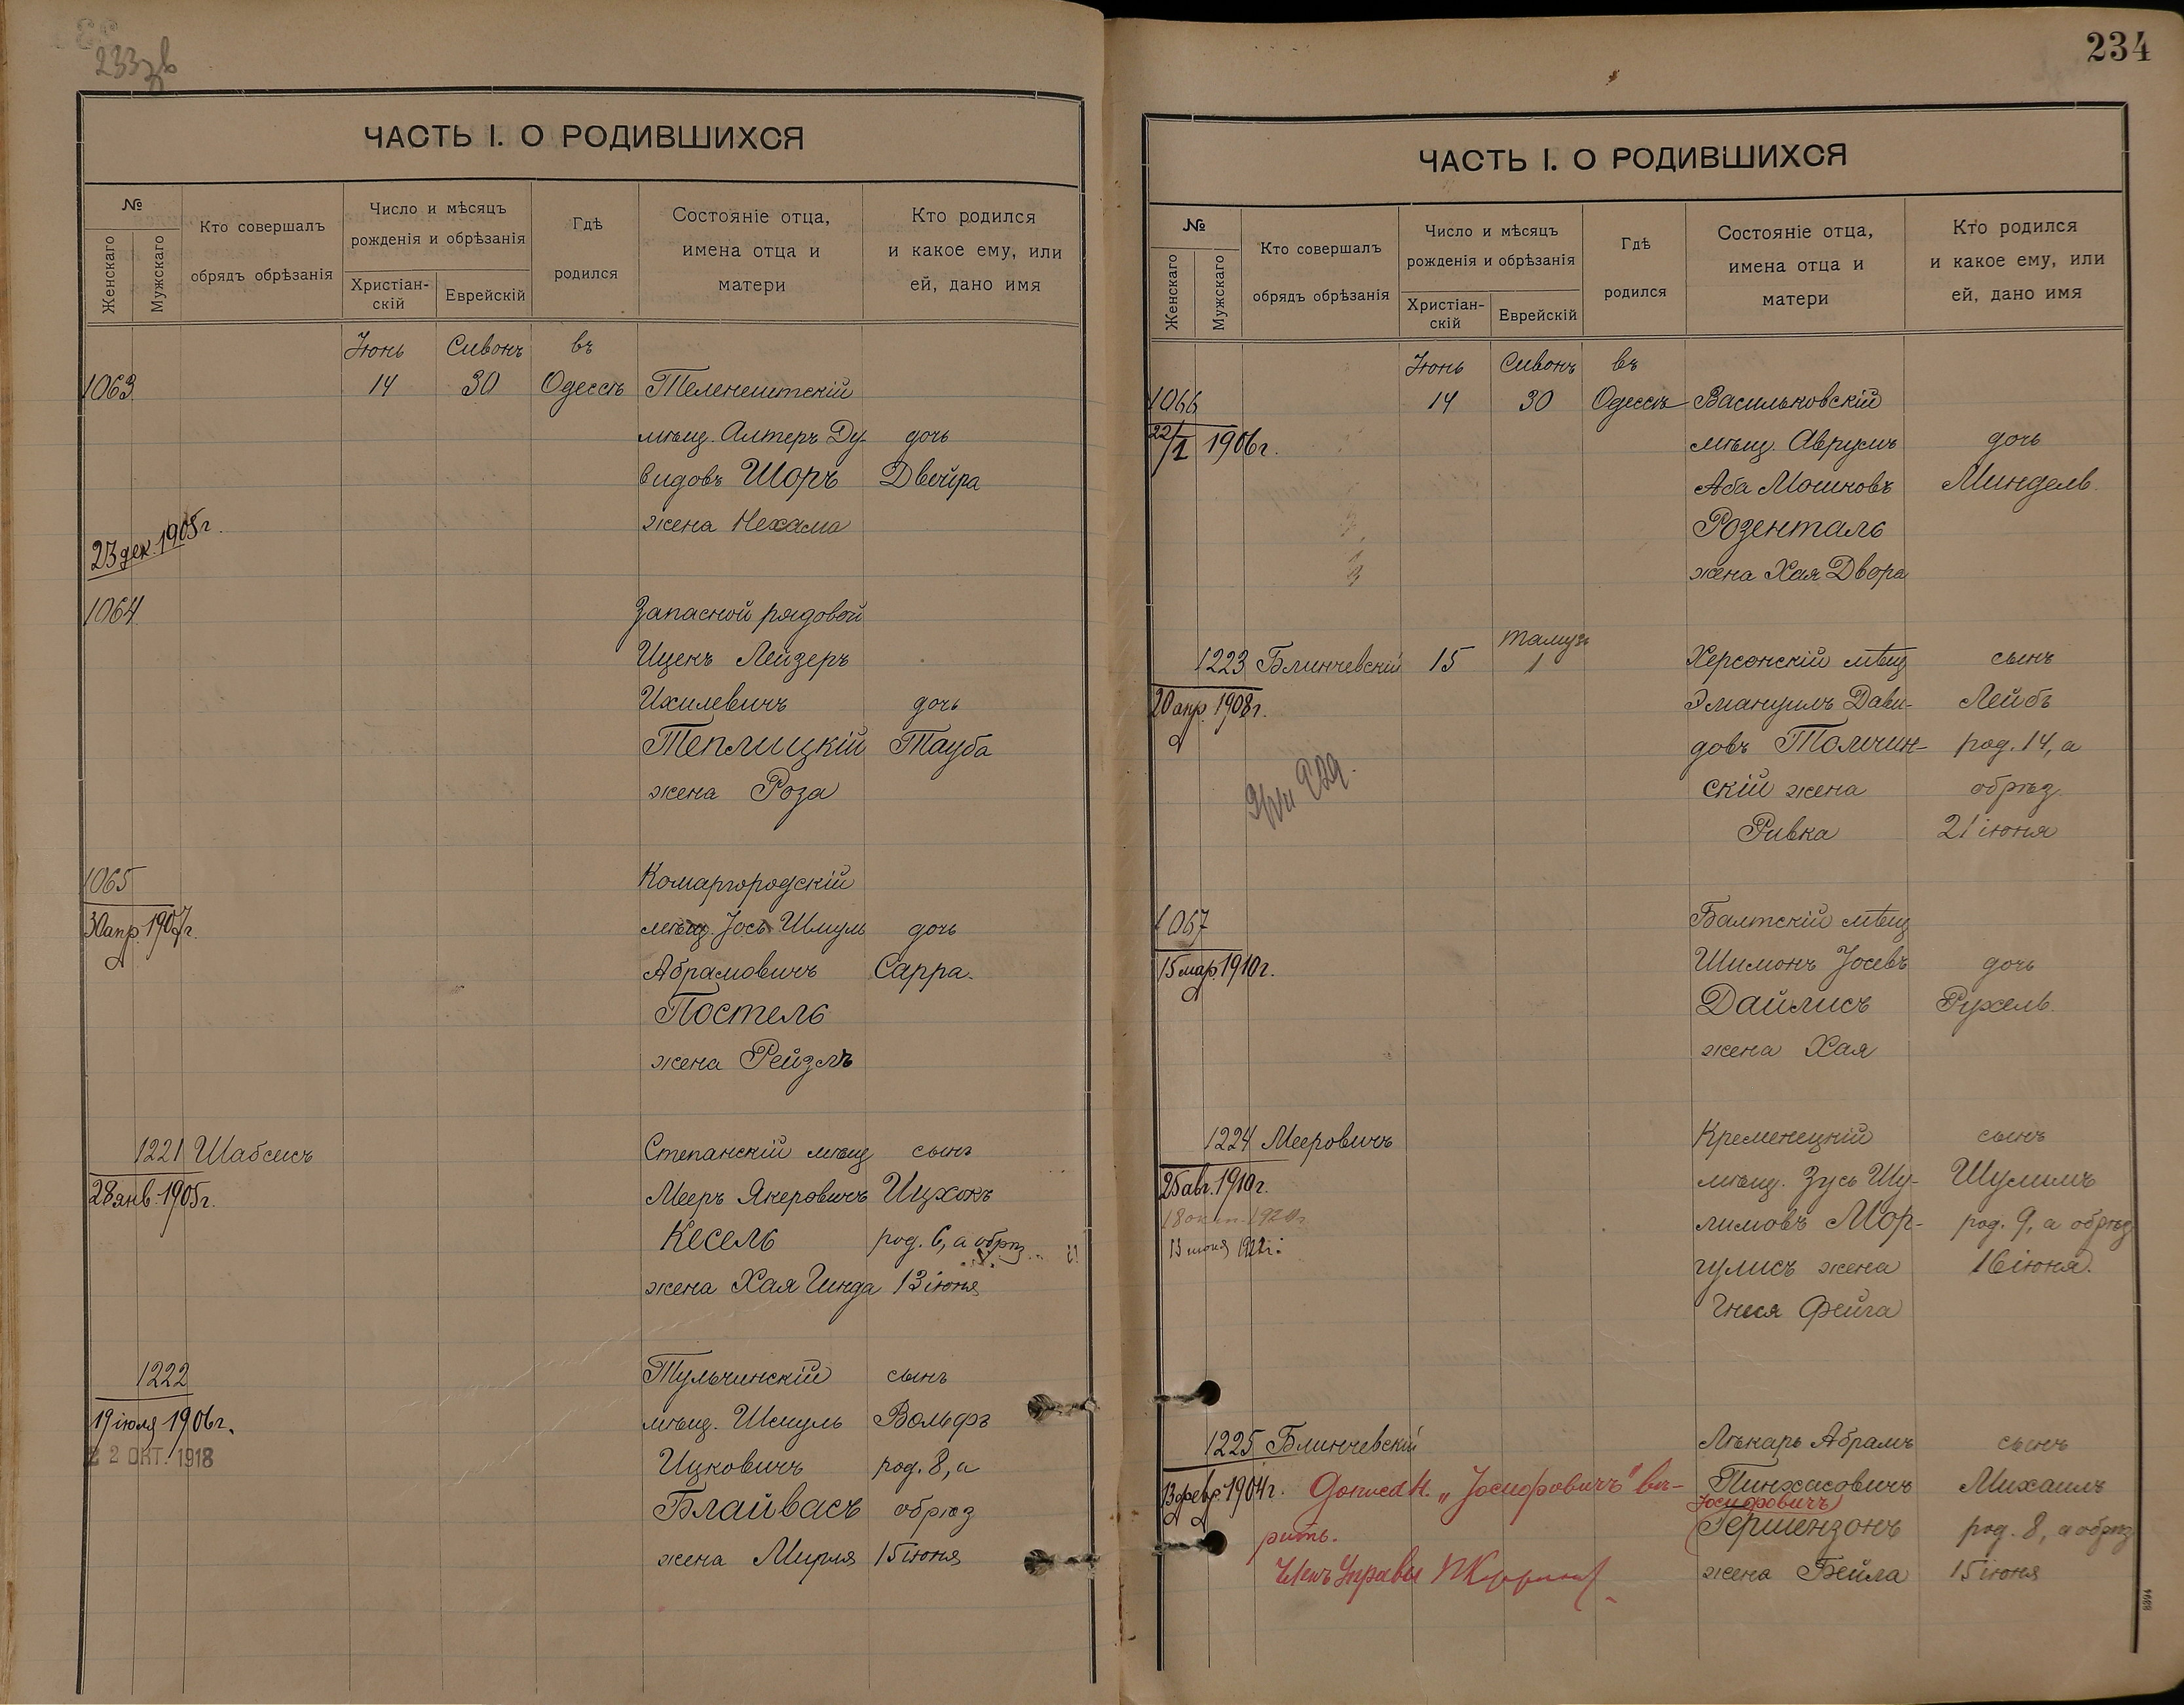 233 об
ЧАСТЬ I. О РОДИВШИХСЯ
№
Женскаго
Мужскаго
Кто совершалъ
обрядъ обрѣзанія
Число и мѣсяцъ
рожденія и обрѣзанія
Христіан-
скій
Еврейскій
Гдѣ
родился
Состояніе отца,
имена отца и
матери
Кто родился
и какое ему, или
ей, дано имя
Іюнь Сивонъ въ
1063 14 30 Одессѣ Теленештскій
мѣщ. Алтеръ Ду- дочь
видовъ Шоръ Двейра
жена Нехама
23 дек. 1905 г.
1064 Запасной рядовой
Ицекъ Лейзеръ
Ихилевичъ дочь
Теплицкій Тауба
жена Роза
1065 Комаргородскій
30 апр. 1907 г. мѣщ. Іось Шмуль дочь
Абрамовичъ Сарра.
Постель
жена Рейзлъ
1221 Шабсисъ Степанскій мѣщ сынъ
28 янв. 1905 г. Мееръ Янкеровичъ Ицхокъ
Кесель род. 6, а обрѣз
жена Хая Гинда 13 іюня
1222 Тульчинскій сынъ
19 іюля 1906 г. мѣщ. Шмуль Вольфъ
22 ОКТ. 1918 Ицковичъ род. 8, а
Блайвасъ обрѣз
жена Мирля 15 іюня
234
ЧАСТЬ I. О РОДИВШИХСЯ
№
Женскаго
Мужскаго
Кто совершалъ
обрядъ обрѣзанія
Число и мѣсяцъ
рожденія и обрѣзанія
Христіан-
скій
Еврейскій
Гдѣ
родился
Состояніе отца,
имена отца и
матери
Кто родился
и какое ему, или
ей, дано имя
Іюнь Сивонъ въ
1066 14 30 Одессѣ Васильковскій
22/I 1906 г. мѣщ. Аврумъ дочь
Аба Мошковъ Миндель
Розенталь
жена Хая Двора
Тамузъ
1223 Блинчевскій 15 1 Херсонскій мѣщ сынъ
20 апр. 1908 г. Эмануилъ Дави- Лейбъ
довъ Толчин- род. 14, а
скій жена обрѣз
Ривка 21 іюня
1067 Балтскій мѣщ
15 мар. 1910 г. Шимонъ Іосевъ дочь
Дайлисъ Рухель
жена Хая
1224 Мееровичъ Кременецкій сынъ
25 авг. 1910 г. мѣщ. Зусь Шу- Шулимъ
18 окт. 1920 г. лимовъ Мор- род. 9, а обрѣз
13 іюня 1922 г. гулисъ жена 16 іюня.
Гнеся Фейга
1225 Блинчевскій Лѣкарь Абрамъ сынъ
13 февр. 1904 г. „Іосифовичъ" вѣ- Пинхасовичъ Михаилъ
(Іосифовичъ)
рить. Гершензонъ род. 8, а обрѣз
Членъ Управы жена Бейла 15 іюня